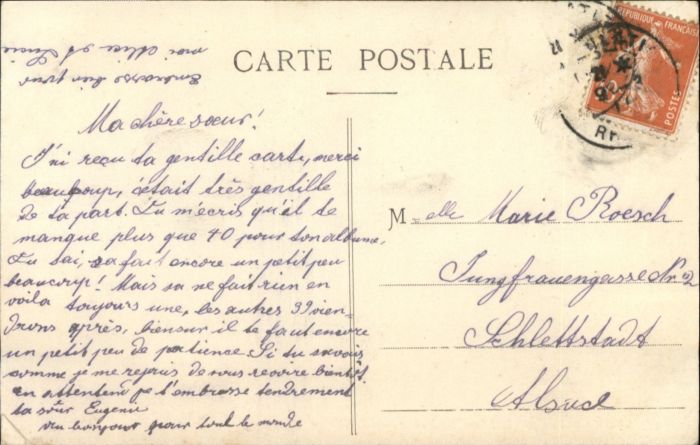 Embrasse bien pour
moi Alice et Lucie
CARTE POSTALE
Ma chère sœur!
J'ai reçu ta gentille carte, merci
beaucoup, c'était très gentille
de ta part. Tu m'écris qu'il te
manque plus que 40 pour ton albume,
Tu sai, sa fait encore un petit peu
beaucoup! Mais sa ne fait rien en
voila toujours une, les autres 39 vien-
drons après, biensur il te faut encore
un petit peu de patience. Si tu savais
comme je me rejouis de vous revoire bientot.
en attendent je t'embrasse tendrement
ta sœur Eugenie
un bonjour pour tout le monde
M elle Marie Roesch
Jungfrauengasse Nr. 2
Schlettstadt
Alsace
REPUBLIQUE FRANÇAISE
POSTES